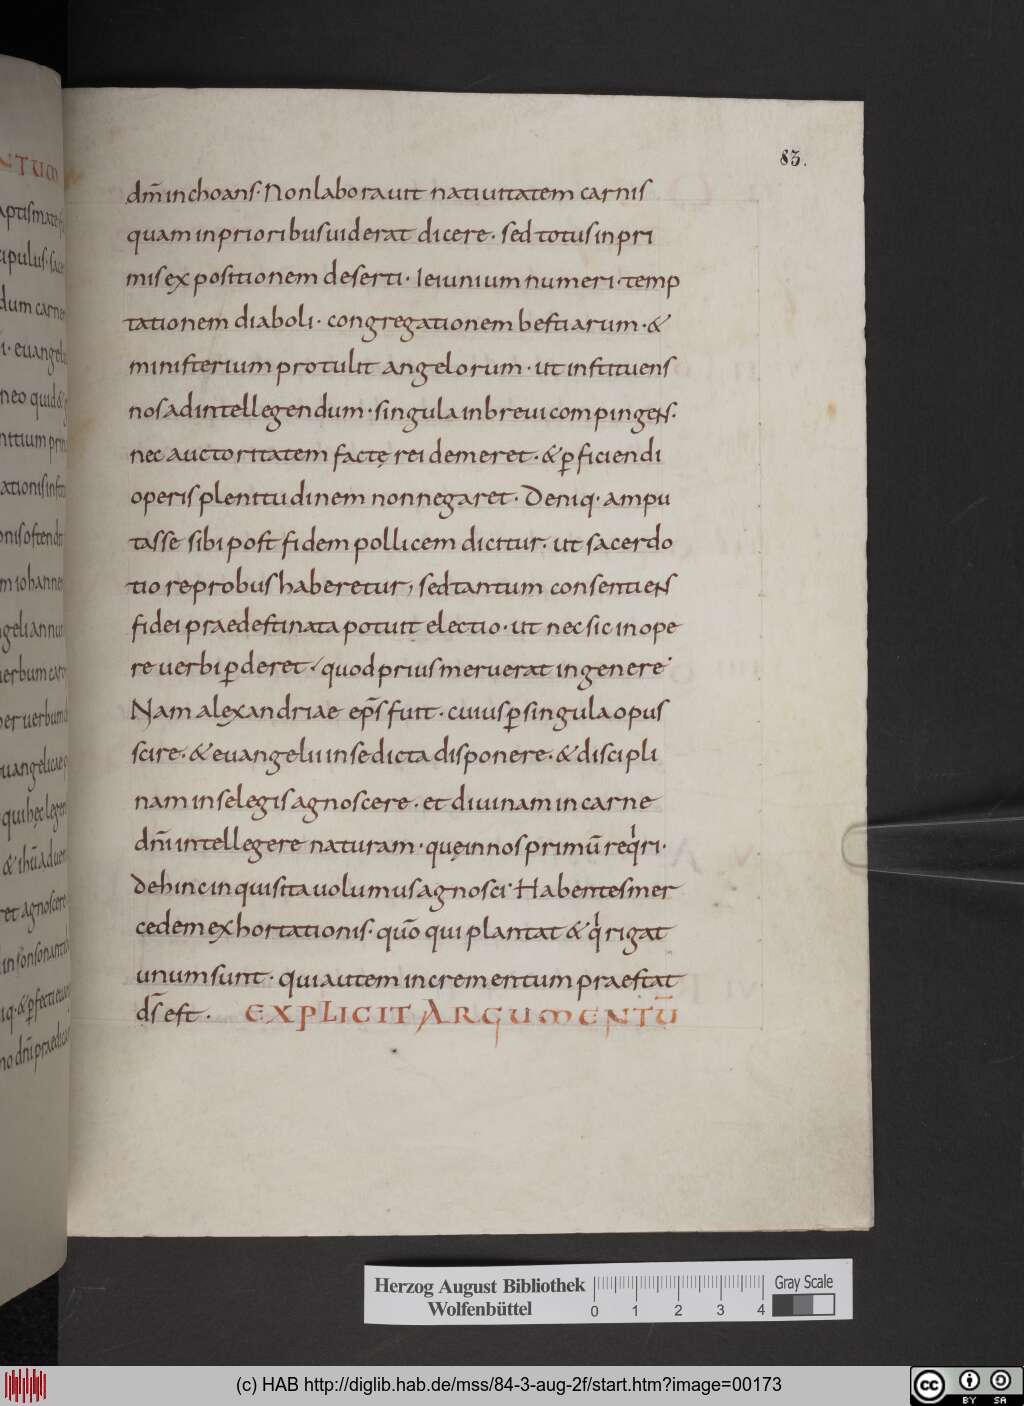 83.
dm̄ inchoans· Non laborauit natiuitatem carnis
quam in prioribus uiderat dicere· sed totus in pri
mis expositionem deserti· Ieiunium numeri· temp
tationem diaboli· congregationem bestiarum· &
ministerium protulit angelorum· ut instituens
nos ad intellegendum· singula in breui compingens·
nec auctoritatem factę rei demeret· & ꝑficiendi
operis plenitudinem non negaret· Deniq· ampu
tasse sibi post fidem pollicem dicitur· ut sacerdo
tio reprobus haberetur, sed tantum consentiens
fidei praedestinata potuit electio· ut nec sic in ope
re uerbi ꝑderet· quod prius meruerat in genere·
Nam alexandriae ep̄s fuit· cuius ꝑ singula opus
scire· & euangelii in se dicta disponere· & discipli
nam in se legis agnoscere· et diuinam in carne
dn̄i intellegere naturam· quę in nos primū req̍ri·
dehinc inquisita uolumus agnosci· Habentes mer
cedem exhortationis· quō qui plantat & q̍ rigat
unum sunt· qui autem incrementum praestat
ds̄ est· EXPLICIT ARGUMENTŪ
Herzog August Bibliothek
Wolfenbüttel
0 1 2 3 4
Gray Scale
(c) HAB http://diglib.hab.de/mss/84-3-aug-2f/start.htm?image=00173
cc BY SA